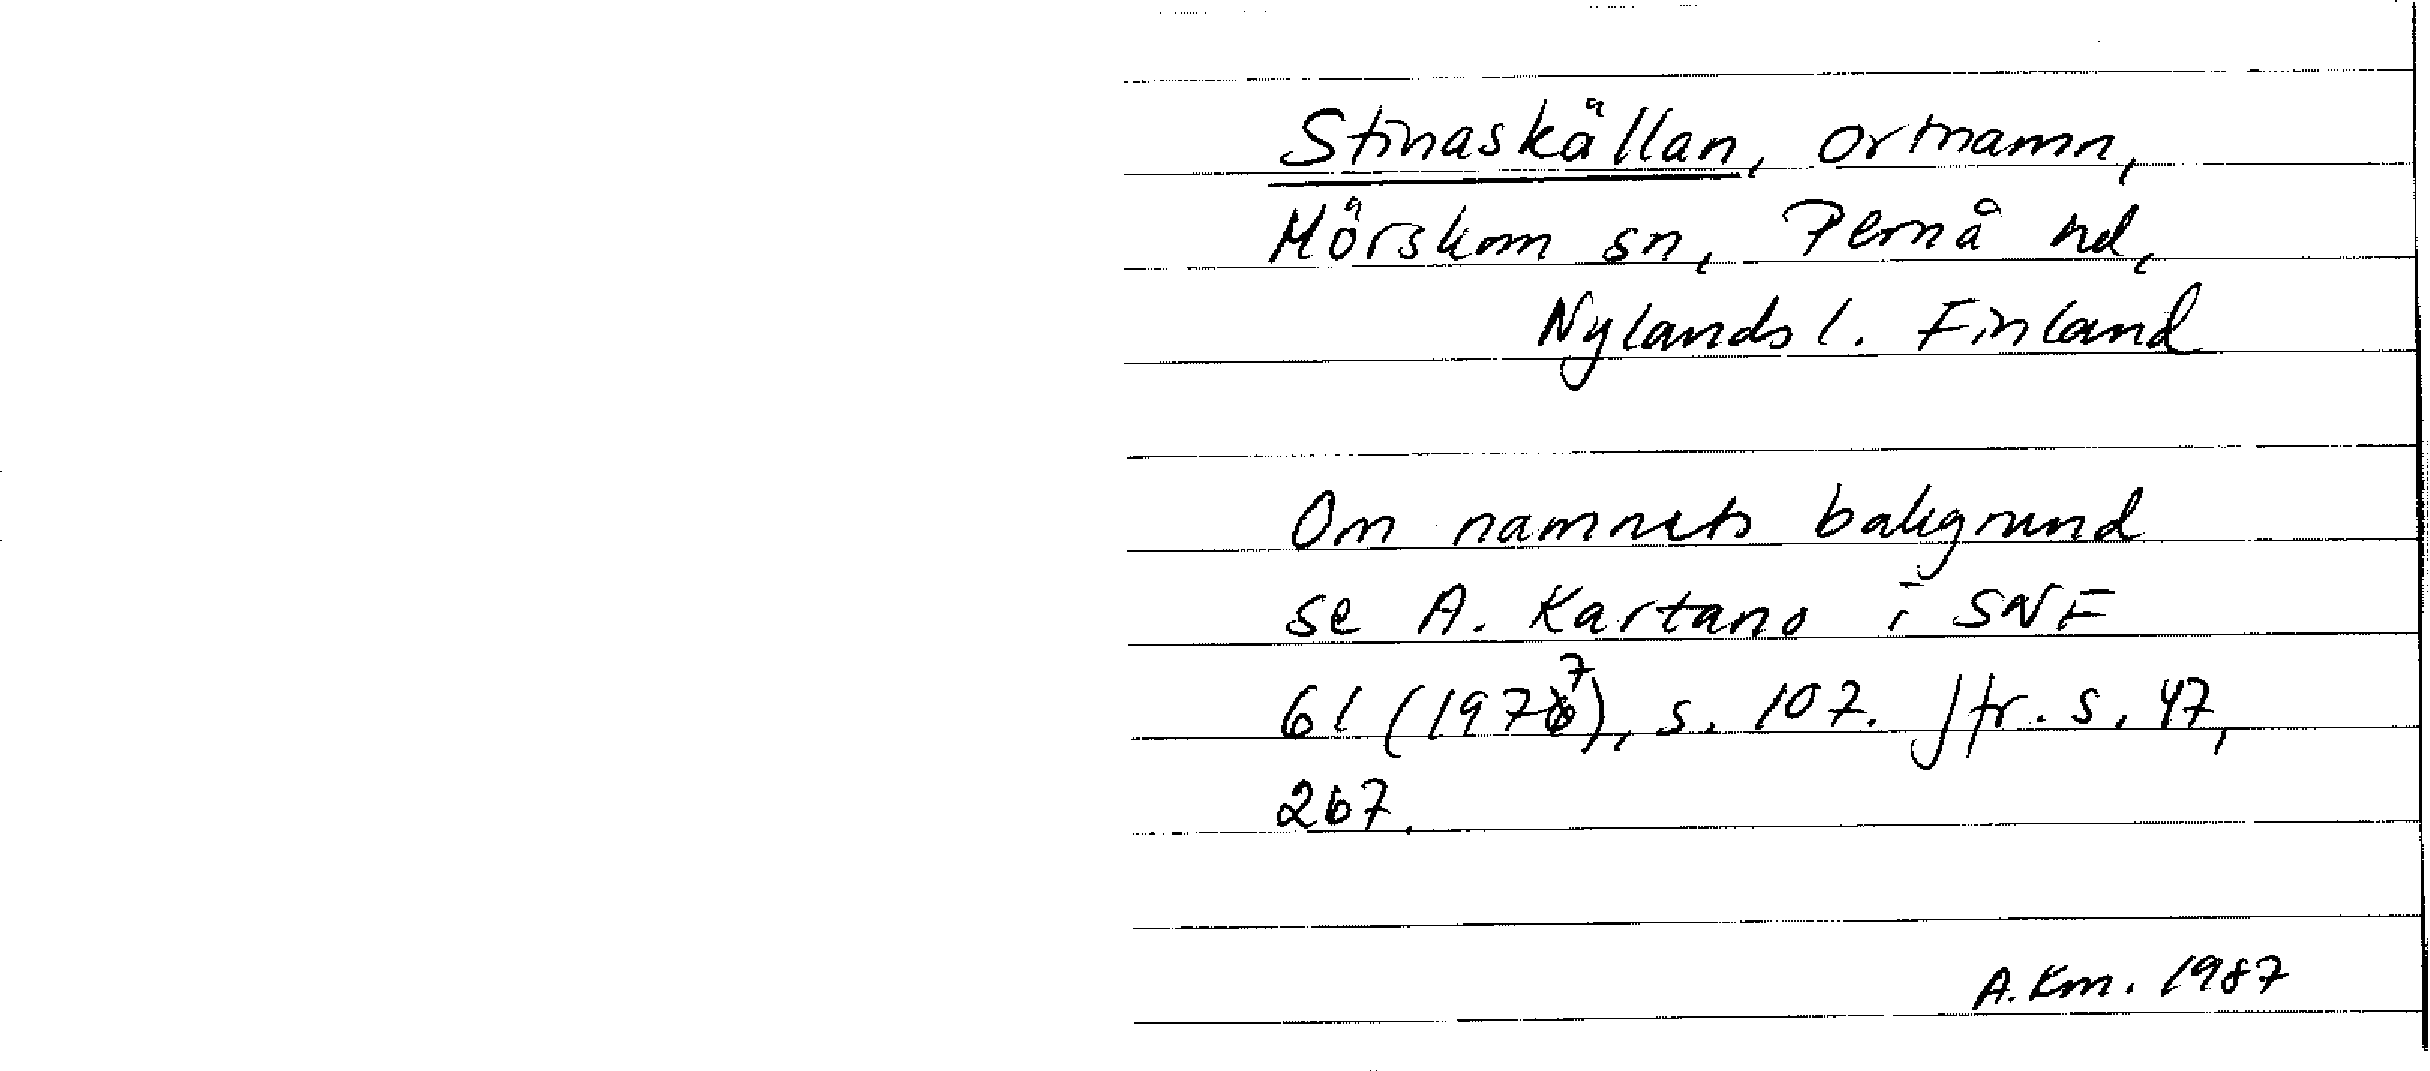 Stinaskällan, ortnamn,
Mörskom sn, Pernå hd,
Nylands l. Finland
Om namnets bakgrund
se A. Kartano i SNF
61 (1977), s. 107. Jfr. s. 47,
267.
A. Km. 1987